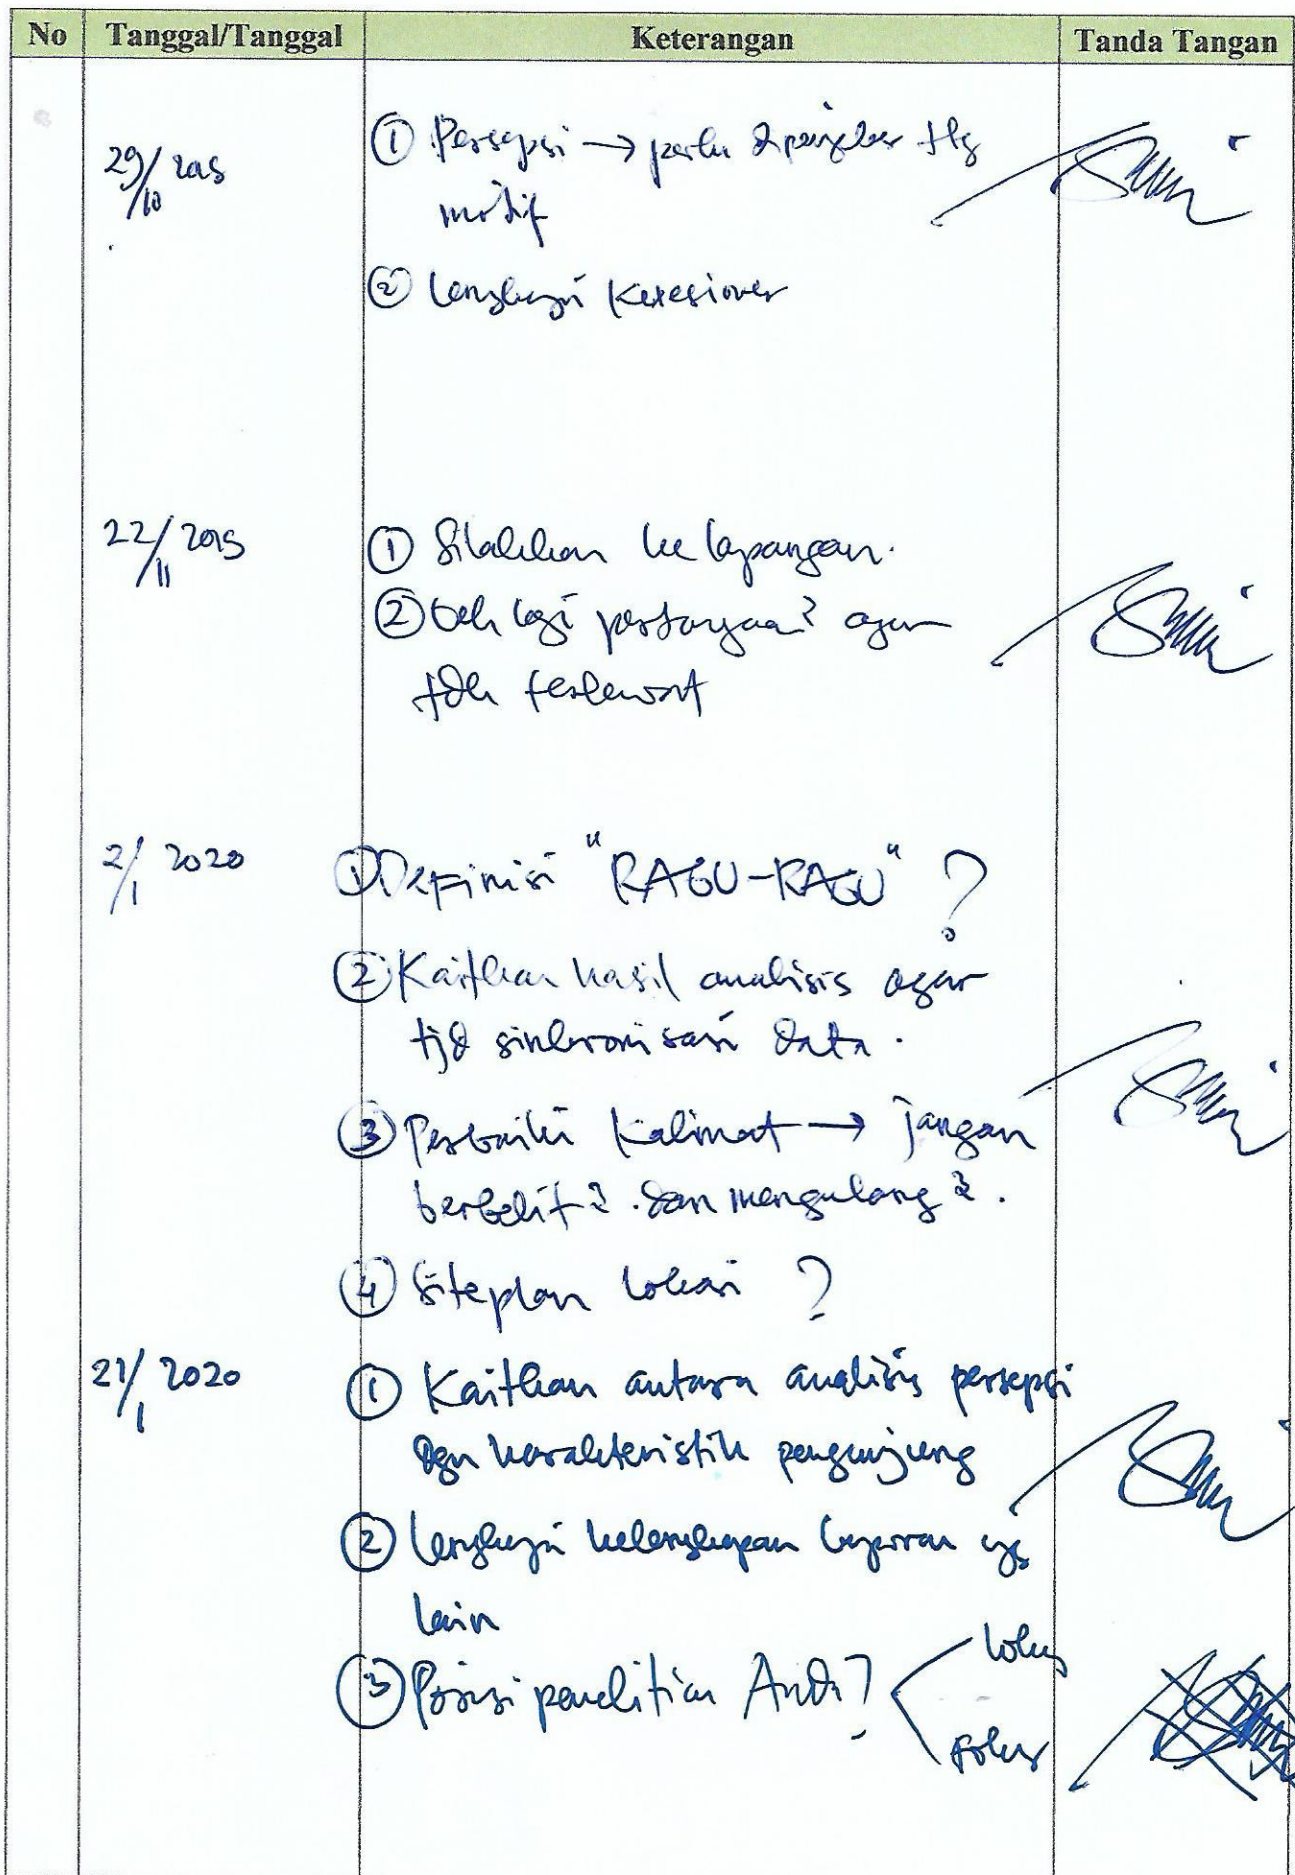 No Tanggal/Tanggal Keterangan Tanda Tangan
29/10 2019 ① Persepsi → perlu dipenjelas ttg
motif
② Lengkapi Kuesioner
22/11 2019 ① Silahkan ke lapangan.
② Cek lagi pertanyaan² agar
tdk terlewat
2/1 2020 ① Definisi "RAGU-RAGU" ?
② Kaitkan hasil analisis agar
tjd sinkronisasi data.
③ Perbaiki Kalimat → jangan
berbelit². dan mengulang².
④ Siteplan lokasi ?
21/1 2020 ① Kaitkan antara analisis persepsi
dgn karakteristik pengunjung
② Lengkapi kelengkapan laporan yg
lain
③ Posisi penelitian Anda? lokus
fokus